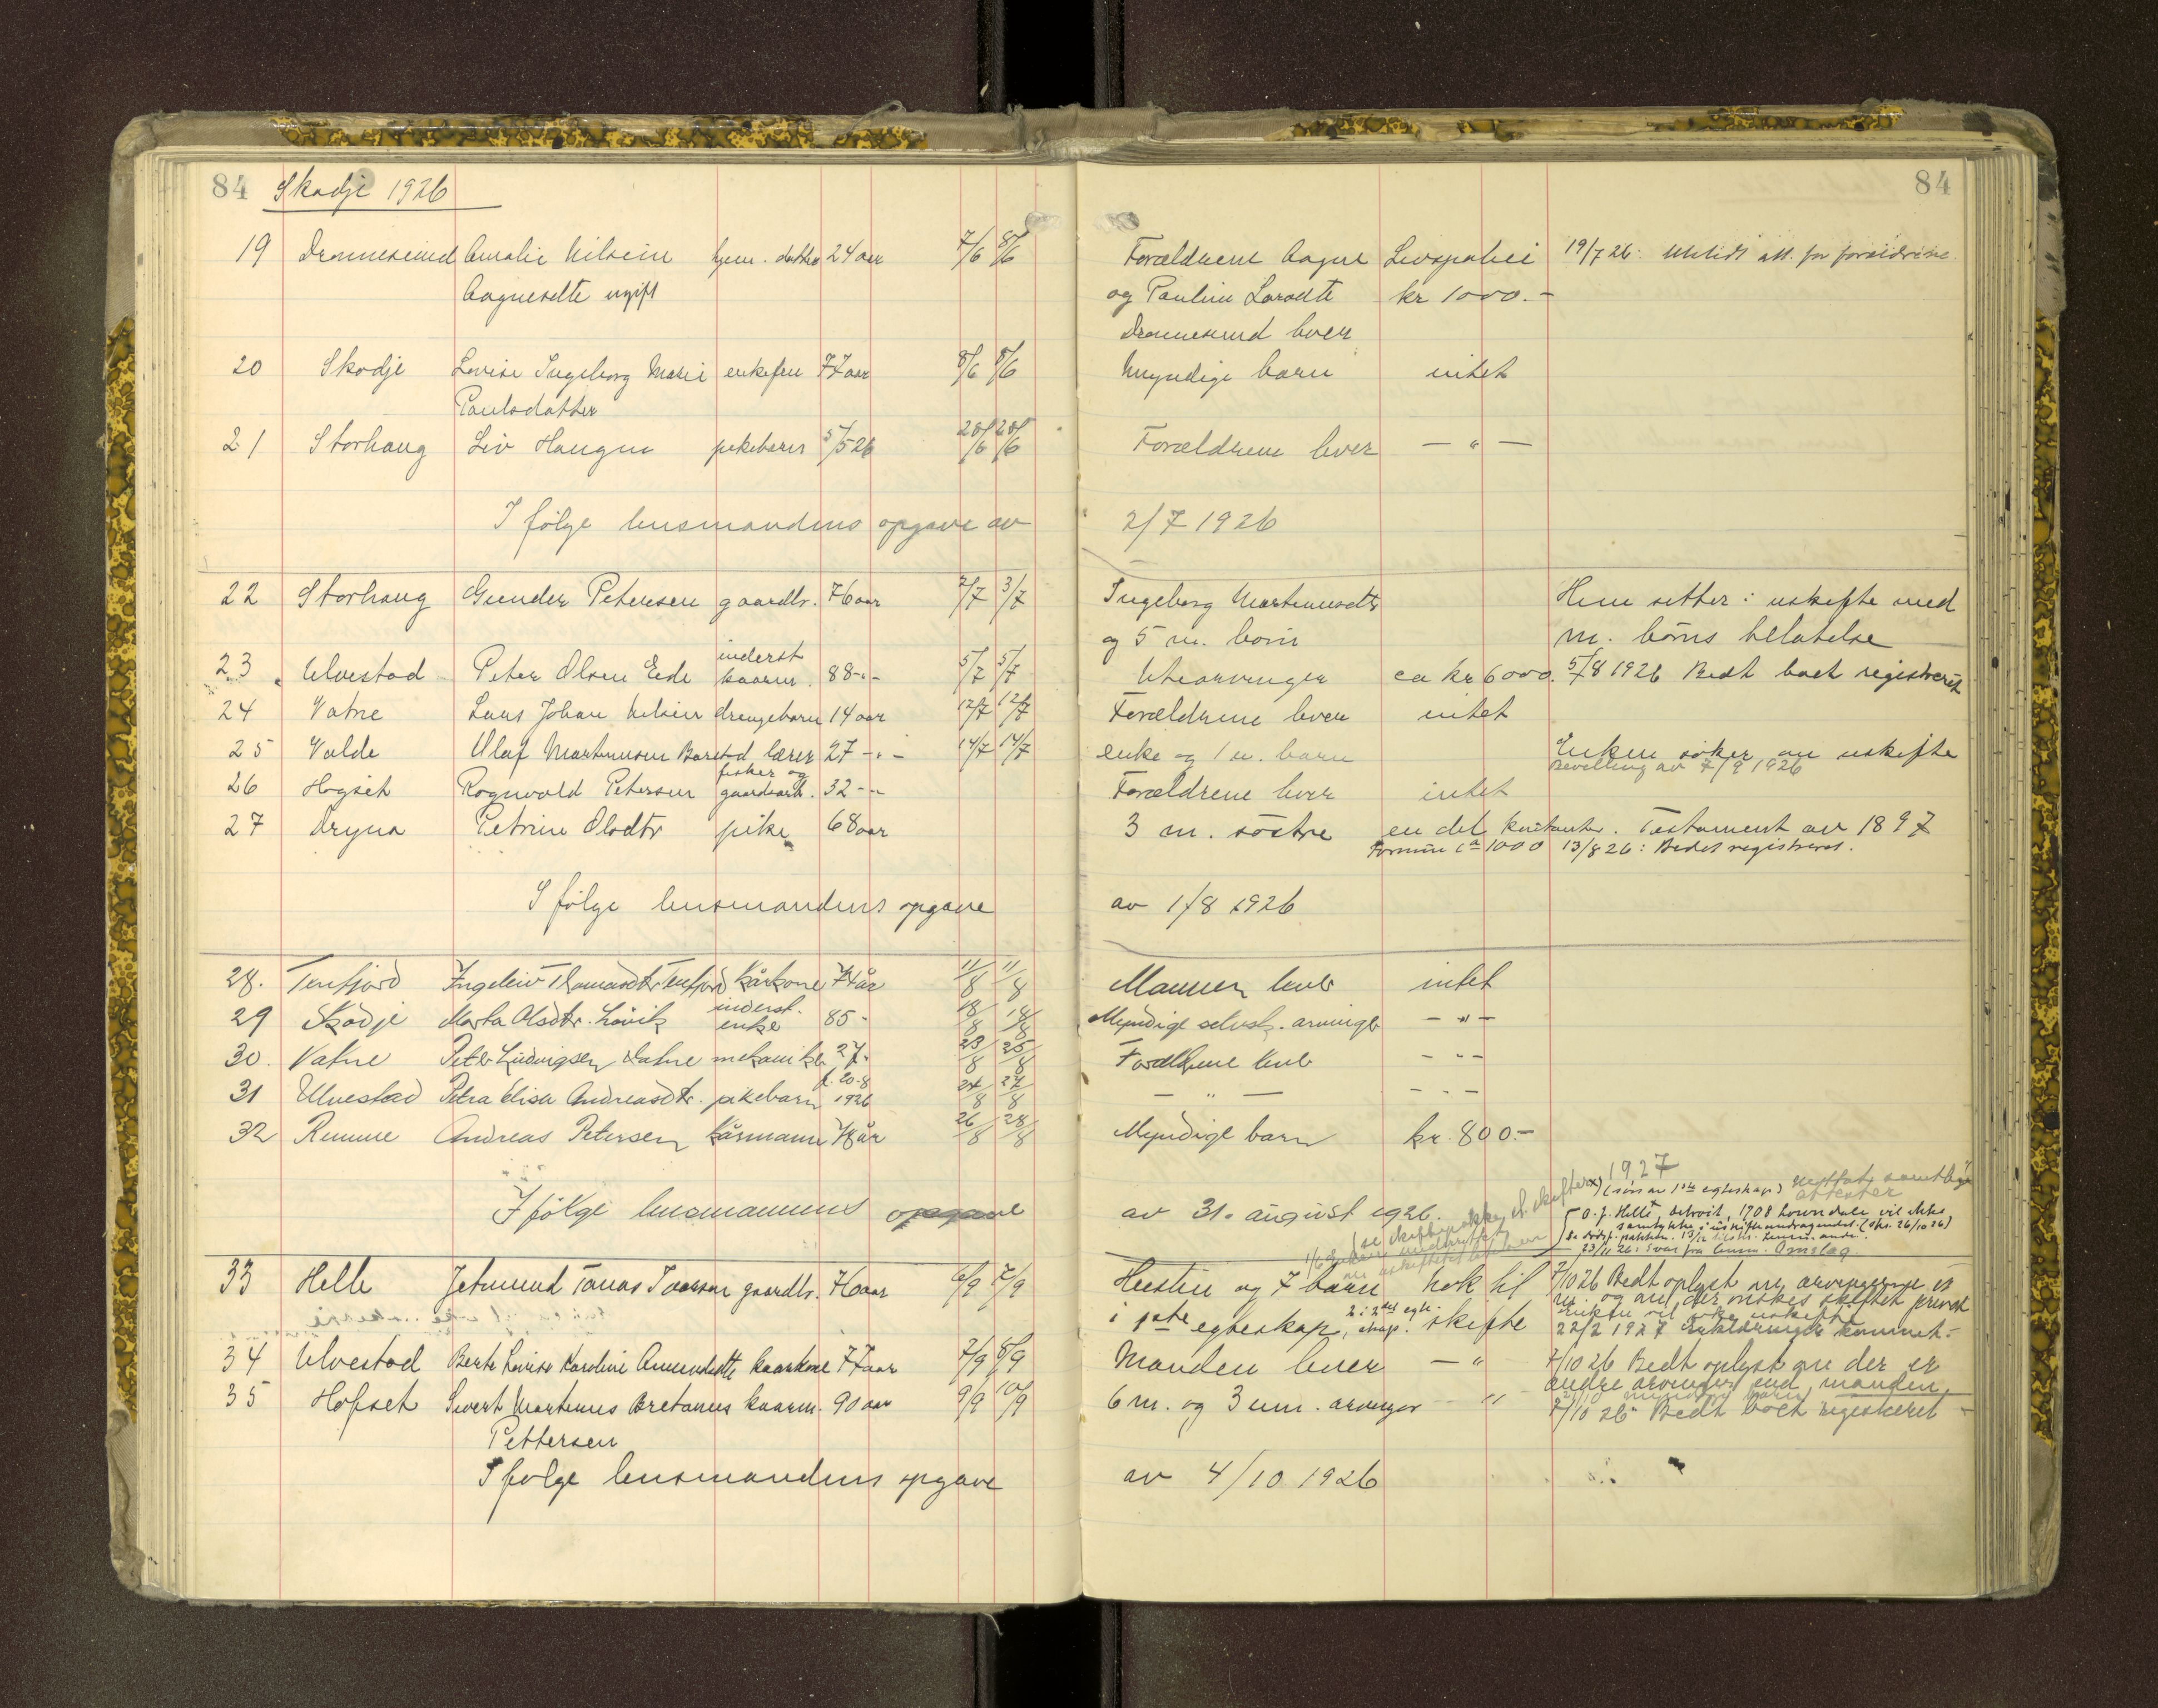 84 Skodje 1926
84
19 Dronnesund Amalie Nilsein hjem. datter 24 aar 7/6 8/6 Forældrene Aagne Livspolici 19/7 26: Utstedt att. for forældrene
Aagnesdtr ugift og Pauline Larsdtr kr 1000.-
Dronnesund lever
20 Skodje Lovise Ingeborg Marie enkefru 77 aar 8/6 8/6 Myndige barn intet
Paulsdatter
21 Storhaug Liv Haugen pikebarn 5/5 26 20/6 20/6 Forældrene lever — " —
I følge lensmandens opgave av 2/7 1926
22 Storhaug Gunder Petersen gaardbr. 76 aar 2/7 3/7 Ingeborg Martinusdtr Hun sitter i uskifte med
og 5 m. born m. børns tilladelse
inderst
23 Ulvestad Peter Olsen Eide kaarm. 88 -"- 5/7 5/7 Utearvinger ca kr 6000. 5/8 1926 Bedt boet registreret
24 Vatne Lars Johan Nilsen drengebarn 14 aar 12/7 12/7 Forældrene lever intet
25 Valde Olaf Martinusen Barstad lærer 27 -"- 14/7 14/7 enke og 1 u. barn Enken søker om uskifte
Bevilling av 7/9 1926
fisker og
26 Hogset Rognvald Petersen gaardarb. 32 -"- Forældrene lever intet
27 Dryna Petrine Olsdtr pike 68 aar 3 m. søstre en del kontanter. Testament av 1897
Formue ca 1000 13/8 26: Bedet registreret.
I følge lensmandens opgave av 1/8 1926
28. Tenfjord Ingeleiv Thomasdtr Tenfjord kårkone 77 år 11/8 11/8 Mannen lever intet
inderst.
29 Skodje Marta Olsdtr. Løvik enke 85 - 18/8 18/8 Myndige selvsk. arvinger — " —
30. Vatne Peter Ludvigsen Vatne mekaniker 27 - 23/8 25/8 Forældrene lever — " —
f. 20-8
31 Ulvestad Petra Elisa Andreasdtr. pikebarn 1926 24/8 27/8 — " — — " —
32 Remme Andreas Petersen kårmann 78 år 26/8 28/8 Myndige barn kr. 800.-
I følge lensmannens opgave av 31. august 1926.
1927
x) (søn av 1ste egteskap)
attester
O. J. Helle, Detroit, 1708 Lounsdale vil ikke
samtykke i uskifteandragendet. (skr. 26/10 26)
23/11 26: Svar fra lensm.
33 Helle Jetmund Tomas Ivarson gaardbr. 76 aar 6/9 7/9 Hustru og 7 barn nok til 7/10 26 Bedt oplyst om arvingerne er
m. og om der ønskes skiftet privat
i 1ste egteskap, 2 i 2det egteskap. skifte
22/2 1927 Erklæringer kommet.
34 Ulvestad Berte Lovise Karoline Amundsdtr kaarkone 77 aar 7/9 8/9 Manden lever — " 7/10 26 Bedt oplyst om der er
andre arvinger end manden
35 Hofset Sivert Martinus Bretanus kaarm. 90 aar 9/9 10/9 6 m. og 3 um. arvinger — " 7/10 26 Bedt boet registreret
Pettersen
I følge lensmandens opgave av 4/10 1926